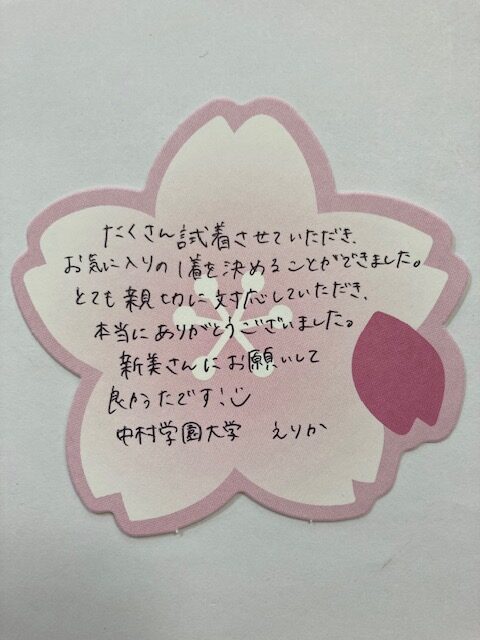 たくさん試着させていただき、
お気に入りの1着を決めることができました。
とても親切に対応していただき、
本当にありがとうございました。
新美さんにお願いして
良かったです!
中村学園大学 えりか